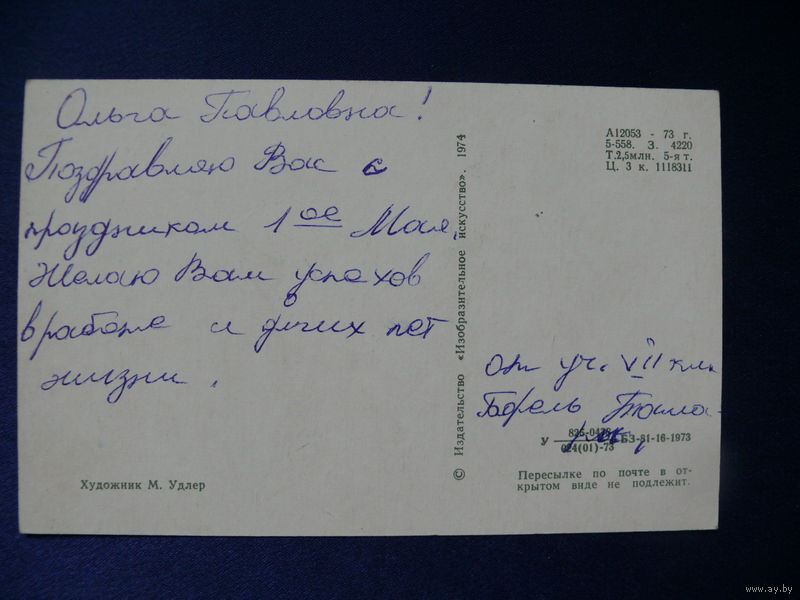 Ольга Павловна!
Поздравляю Вас с
праздником 1ое Мая.
Желаю Вам успехов
в работе и долгих лет
жизни.
Художник М. Удлер
© Издательство «Изобразительное искусство». 1974
А12053 - 73 г.
5-558. З. 4220
Т.2,5млн. 5-я т.
Ц. 3 к. 1118311
от уч. VII кл.
У 825-0428 БЗ-81-16-1973
024(01)-73
Пересылке по почте в от-
крытом виде не подлежит.
www.ay.by